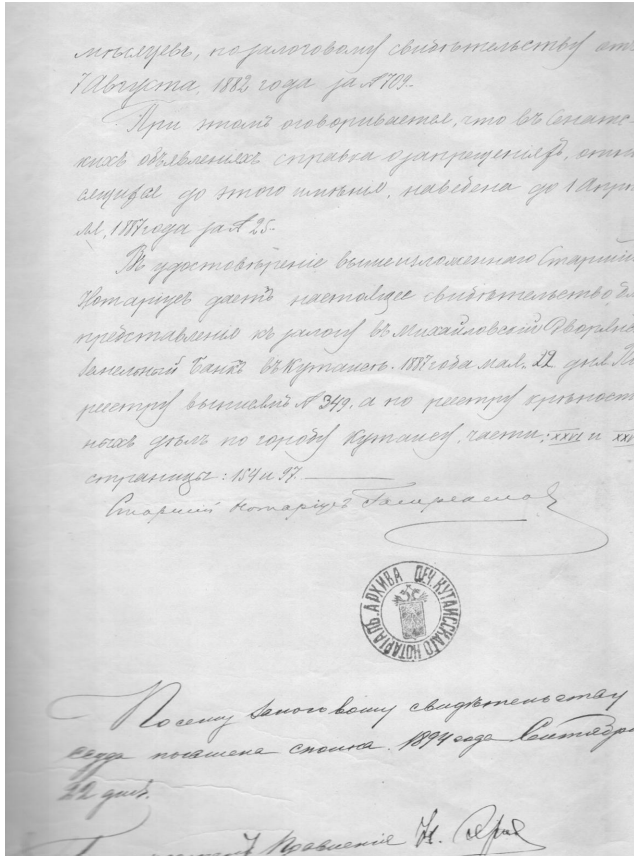 по залоговому свидѣтельству отъ
7 Августа, 1882 года за № 709.
При этомъ оговаривается, что въ Сенатс-
кихъ объявленіяхъ справка о запрещеніяхъ, отно
сящихся до этого имѣнія, наведена до 1 Апрѣ
ля, 1887 года за № 25.
Въ удостовѣреніе вышеизложеннаго Старшій
Нотаріусъ даетъ настоящее свидѣтельство для
представленія къ залогу въ Михайловскій Дворянс
Земельный Банкъ въ Кутаисѣ. 1887 года мая, 22 дня. По
реестру № 349, а по реестру крѣпост
ныхъ дѣлъ по городу Кутаису, части: XXVI и
страницы: 154 и 97.
Старшій Нотаріусъ
ПЕЧ. КУТАИССКАГО НОТАРІАЛЬ. АРХИВА
По сему залоговому свидѣтельству
ссуда погашена сполна. 1894 года Сентября
22 дня.
Правленія